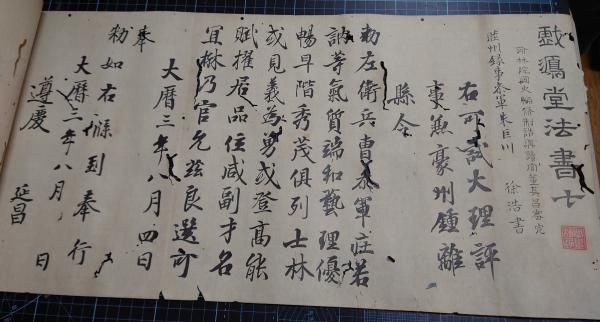 戲鴻堂法書十
翰林院國史編修制誥講讀官董其昌審定
徐浩書
莊州錄事參軍朱巨川
右可試大理評
事兼豪州鍾離
縣令
勑左衛兵曹參軍莊若
訥等氣質端和藝理優
暢早階秀茂俱列士林
或見義為勇或登高能
賦擢居品位咸副才名
宜楙乃官允茲良選可
大曆三年八月四日
奉
勑如右牒到奉行
大曆三年八月 日
遵慶
延昌